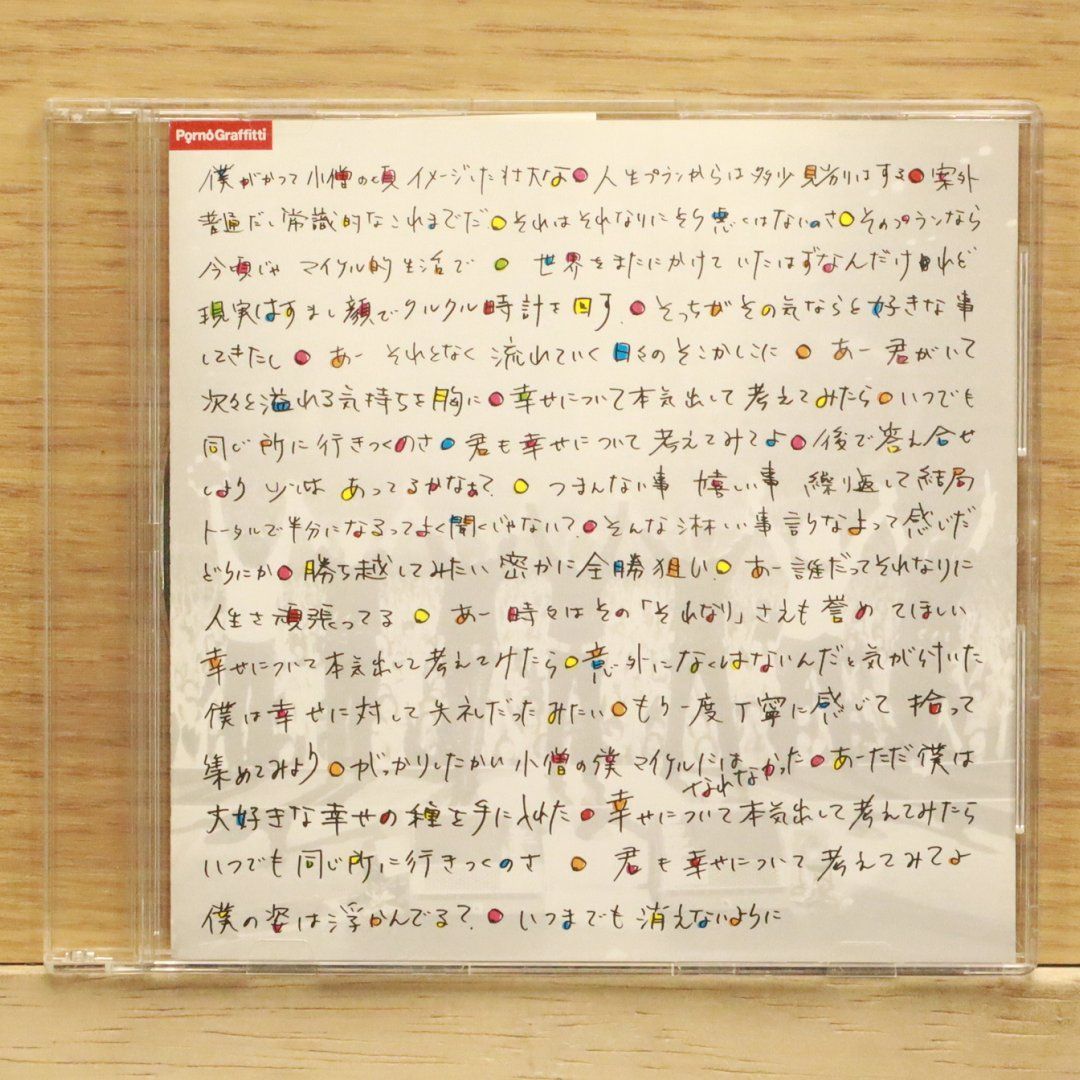 PornoGraffitti
僕がかつて小僧の頃イメージした壮大な●人生プランからは多少見劣りはする●案外
普通だし常識的なこれまでだ●それはそれなりにそう悪くはないのさ●そのプランなら
今頃じゃ マイケル的生活で ● 世界をまたにかけていたはずなんだけれど
現実はすまし顔でクルクル時計を回す●そっちがその気ならと好きな事
してきたし ● あー それとなく 流れていく日々のそこかしこに ● あー 君がいて
次々と溢れる気持ちを胸に●幸せについて本気出して考えてみたら●いつでも
同じ所に行きつくのさ●君も幸せについて考えてみてよ●後で答え合せ
しよう 少しは あってるかなぁ? ● つまんない事 嬉しい事 繰り返して結局
トータルで半分になるってよく聞くじゃない?●そんな淋しい事言うなよって感じだ
どうにか●勝ち越してみたい 密かに全勝狙い●あー誰だってそれなりに
人生を頑張ってる ● あー 時々はその「それなり」さえも誉めてほしい
幸せについて本気出して考えてみたら●意外になくはないんだと気がら付いた
僕は幸せに対して失礼だったみたい●もう一度丁寧に感じて 拾って
集めてみよう●がっかりしたかい小僧の僕 マイケルにはなれなかった●あーただ僕は
大好きな幸せの種を手に入れた●幸せについて本気出して考えてみたら
いつでも同じ所に行きつくのさ ● 君も幸せについて考えてみてよ
僕の姿は浮かんでる? ● いつまでも消えないように